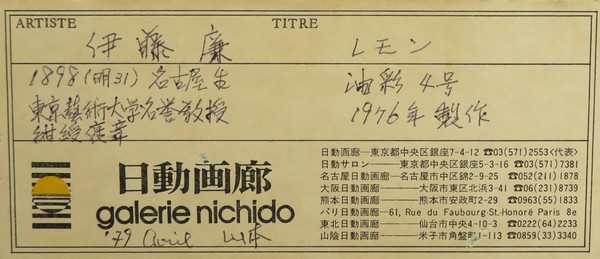 ARTISTE TITRE
伊藤 廉 レモン
1898(明31)名古屋生 油彩4号
東京藝術大学名誉教授 1976年製作
紺綬褒章
日動画廊
galerie nichido
'79 Avril 山本
日動画廊―東京都中央区銀座7-4-12 ☎03(571)2553<代表>
日動サロン―東京都中央区銀座5-3-16 ☎03(571)7381
名古屋日動画廊―名古屋市中区錦2-9-25 ☎052(211)1878
大阪日動画廊―大阪市東区北浜3-41 ☎06(231)8739
熊本日動画廊―熊本市安政町2-29 ☎0963(55)1833
パリ日動画廊―61, Rue du Faubourg-St.Honoré Paris 8e
東北日動画廊―仙台市中央4-10-3 ☎0222(64)2233
山陰日動画廊―米子市角盤町1-113 ☎0859(33)3340